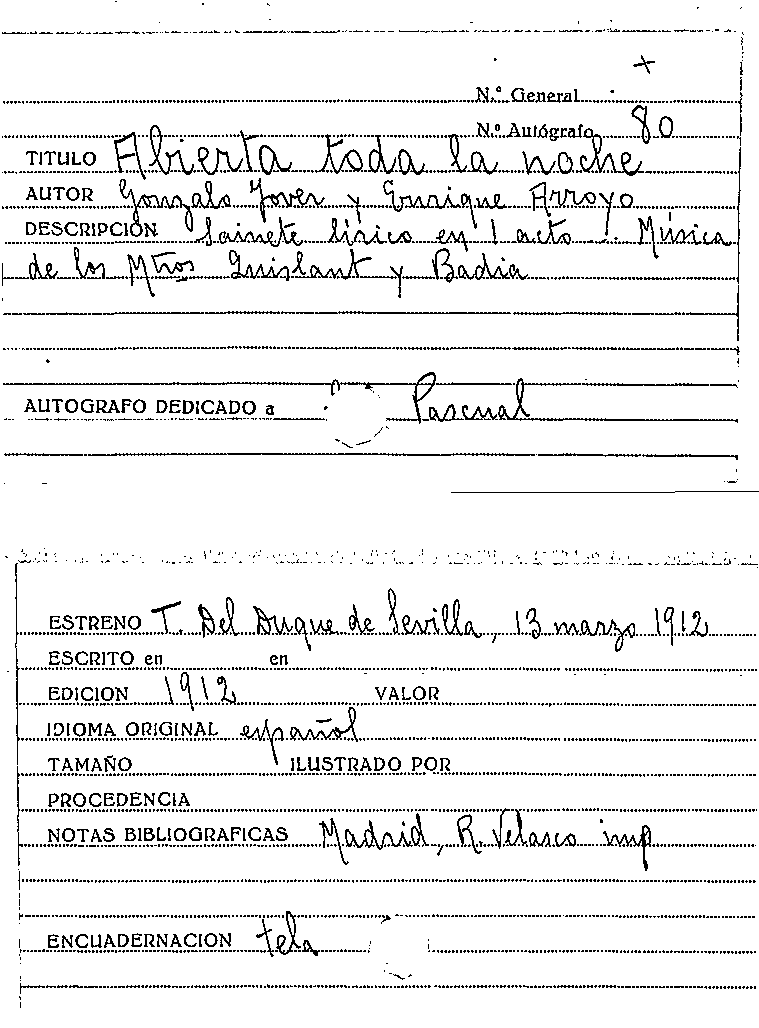 +
N.º General
N.º Autógrafo 80
TITULO Abierta toda la noche
AUTOR Gonzalo Jover y Enrique Arroyo
DESCRIPCIÓN Sainete lírico en 1 acto !. Música
de los Mtros Quislant y Badia
AUTOGRAFO DEDICADO a Pascual
ESTRENO T. Del Duque de Sevilla, 13 marzo 1912
ESCRITO en en
EDICION 1912 VALOR
IDIOMA ORIGINAL español
TAMAÑO ILUSTRADO POR
PROCEDENCIA
NOTAS BIBLIOGRAFICAS Madrid, R. Velasco imp
ENCUADERNACION tela